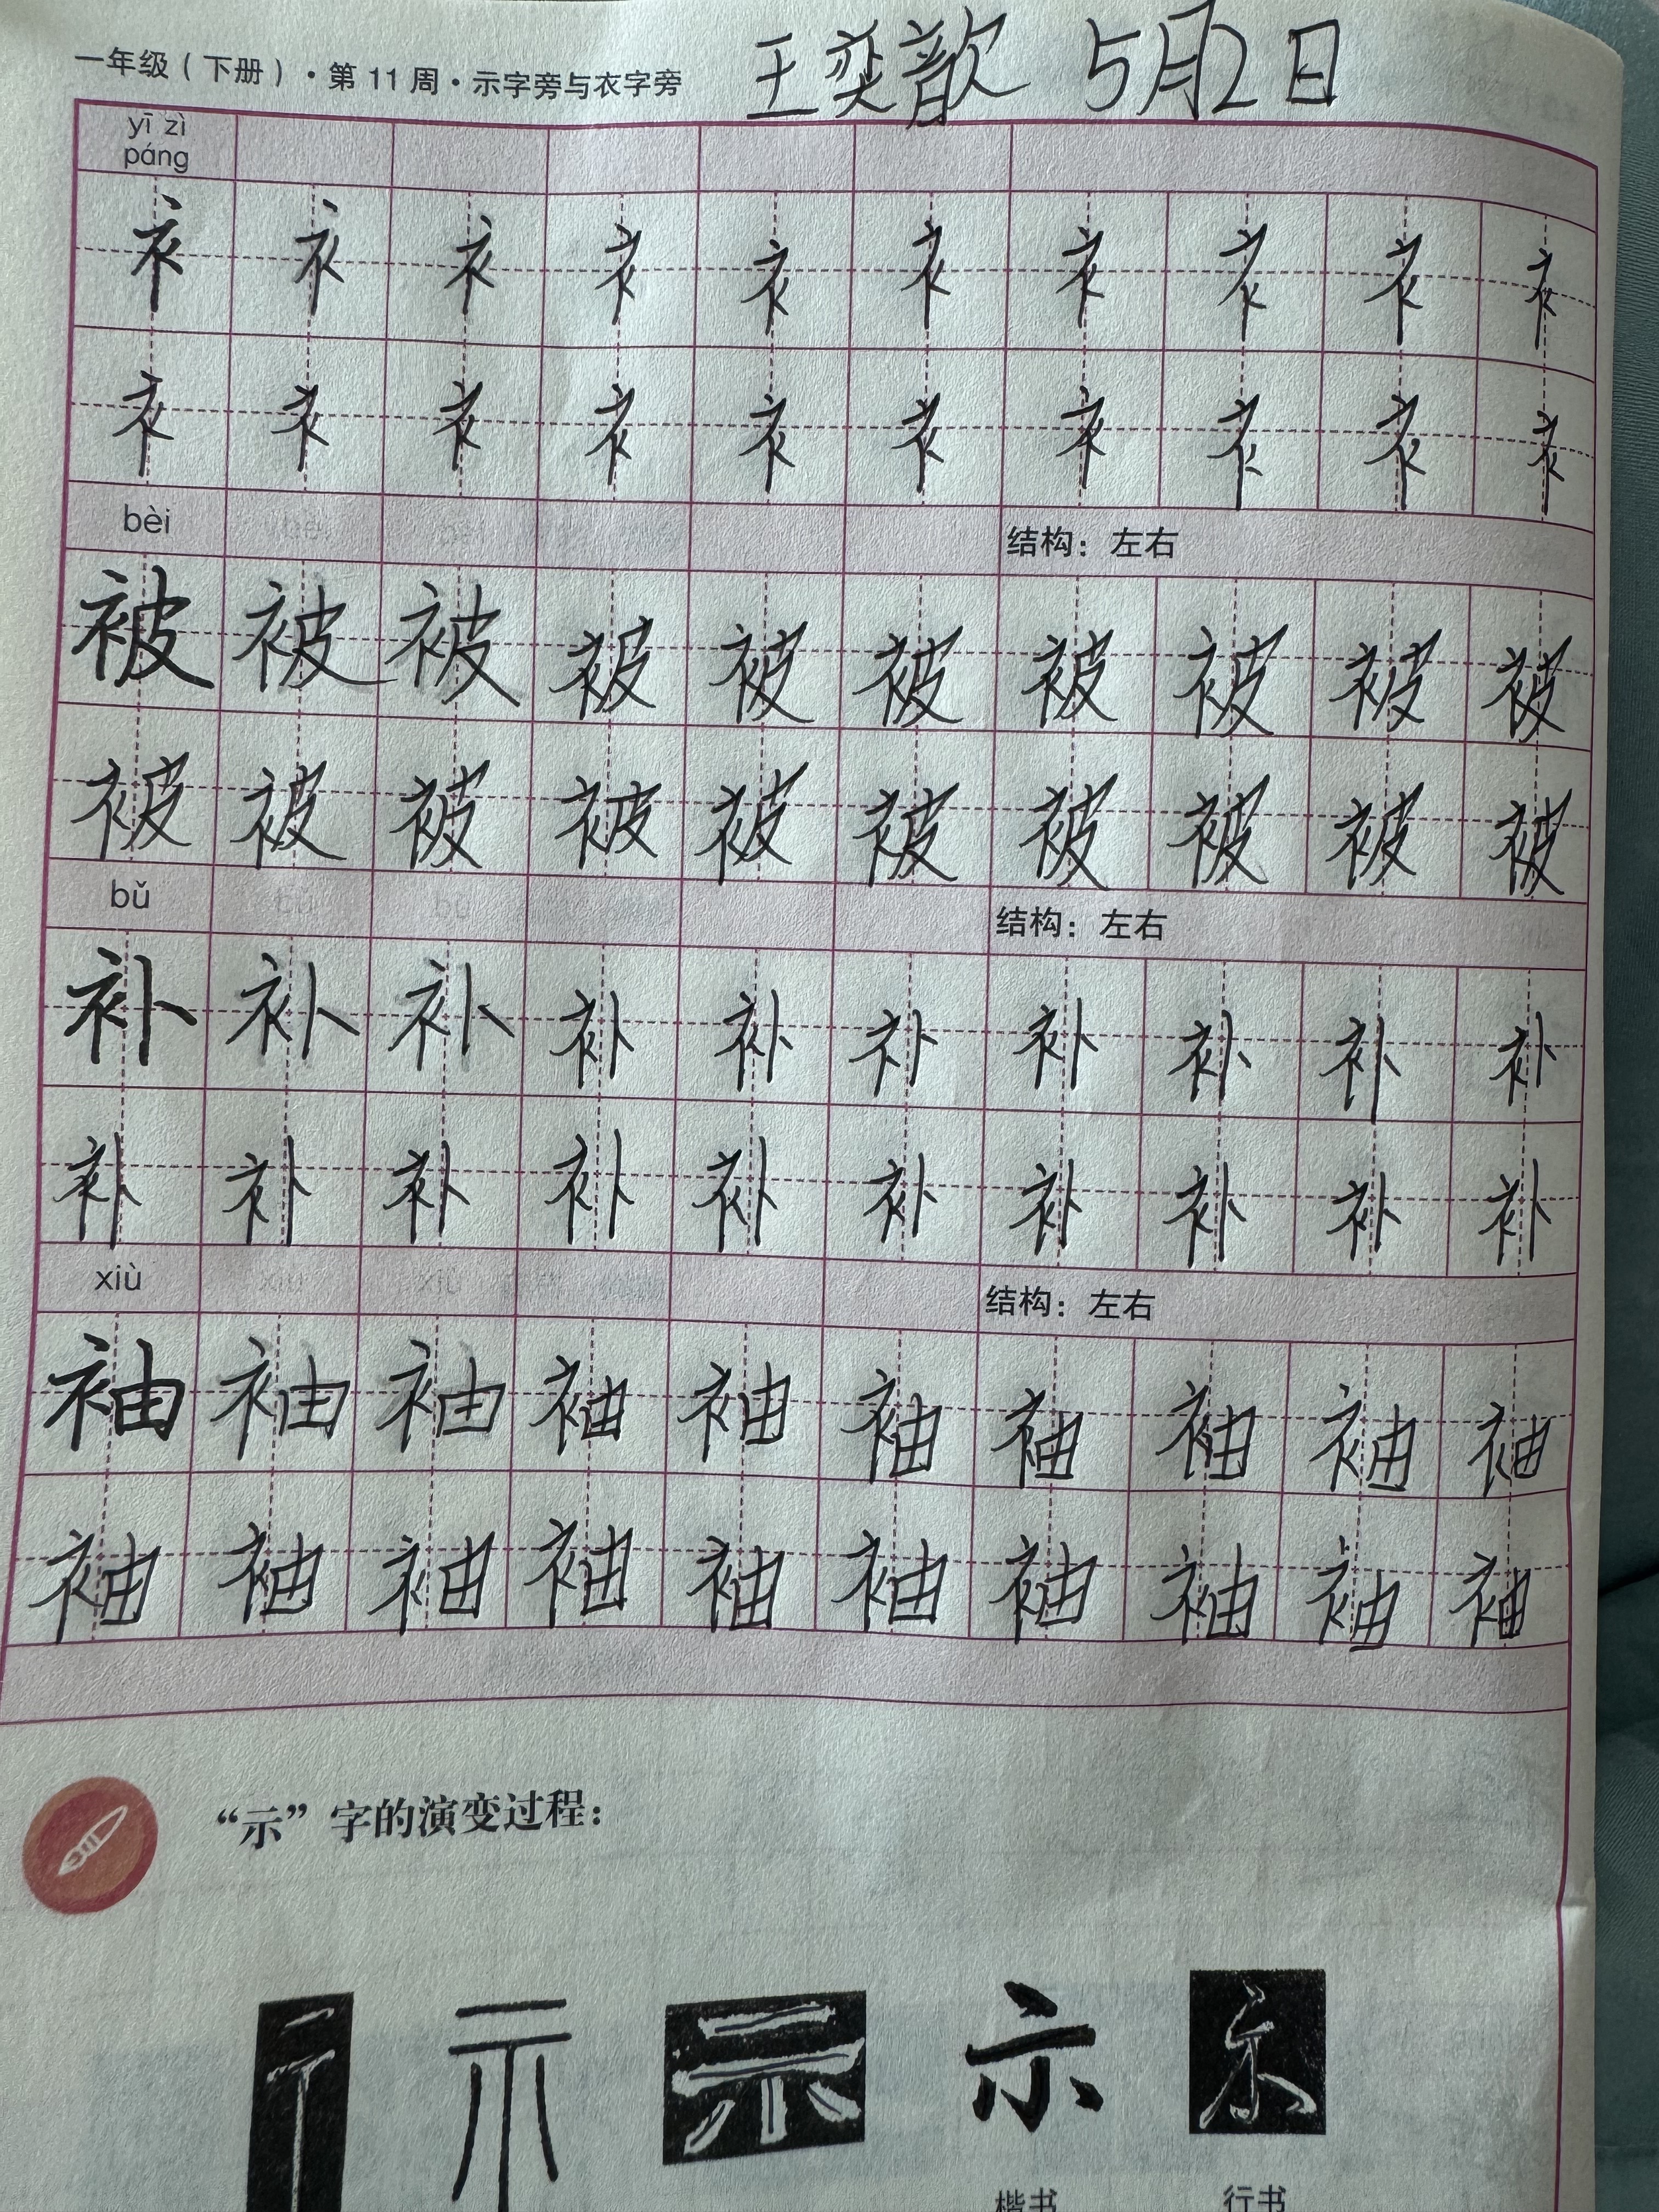 一年级（下册）·第11周·示字旁与衣字旁 王奕歆 5月2日
yī zì
páng
衤 衤 衤 衤 衤 衤 衤 衤 衤 衤
衤 衤 衤 衤 衤 衤 衤 衤 衤 衤
bèi 结构：左右
被 被 被 被 被 被 被 被 被 被
被 被 被 被 被 被 被 被 被 被
bǔ 结构：左右
补 补 补 补 补 补 补 补 补 补
补 补 补 补 补 补 补 补 补 补
xiù 结构：左右
袖 袖 袖 袖 袖 袖 袖 袖 袖 袖
袖 袖 袖 袖 袖 袖 袖 袖 袖 袖
“示”字的演变过程：
示 示 示 示
楷书 行书